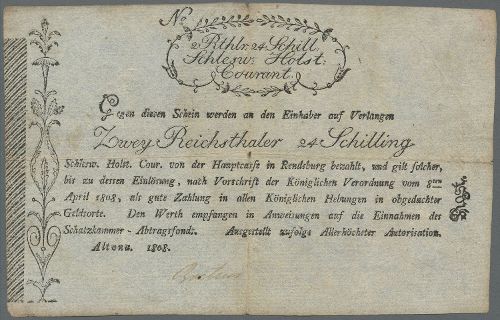 No
2 Rthlr. 24 Schill.
Schlesw: Holst:
Courant.
Gegen diesen Schein werden an den Einhaber auf Verlangen
Zwey Reichsthaler 24 Schilling
Schlesw. Holst. Cour. von der Hauptcasse in Rendsburg bezahlt, und gilt solcher,
bis zu dessen Einlösung, nach Vorschrift der Königlichen Verordnung vom 8ten
April 1808, als gute Zahlung in allen Königlichen Hebungen in obgedachter
Geldsorte. Den Werth empfangen in Anweisungen auf die Einnahmen des
Schatzkammer-Abtragsfonds. Ausgestellt zufolge Allerhöchster Autorisation.
Altona. 1808.